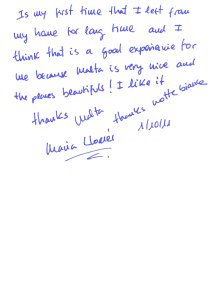 Is my first time that I left from
my home for long time and I
think that is a good experience for
me because Malta is very nice and
the places beautifuls! I like it
thanks Malta thanks notte bianca
Maria 1/10/11